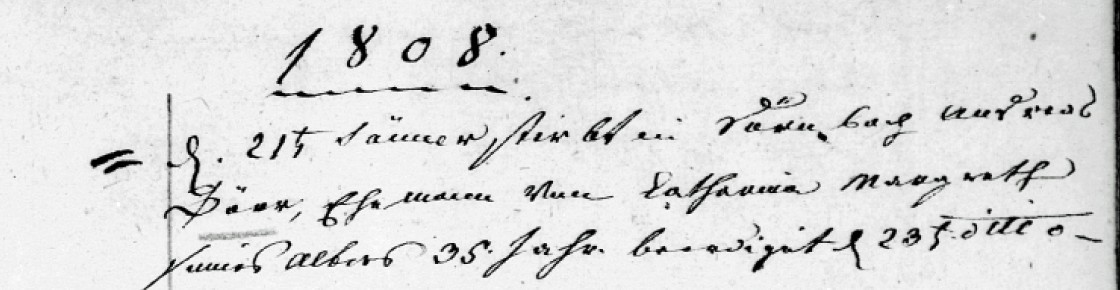 1808.
d. 21t Jänner stirbt in Dürnbach Andreas
Bäur, Ehemann von Catharina Margreth
seines Alters 35. Jahr. beerdigt d 23t ditto